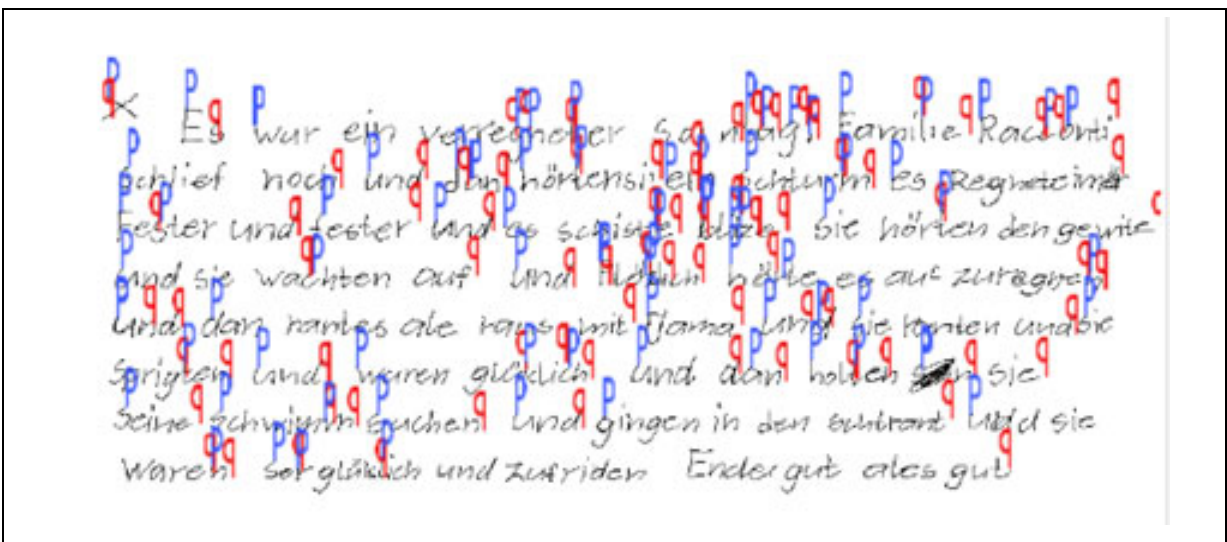 Es war ein verregneter Familie Racconti
schlief noch und dan hörten ein schturm es Regnete imer
Fester und fester und es blize Sie hörten den gewite
und sie wachten auf und hörte es auf zuregnen
und dan ale raus mit Pjama und sie und sie
Sprigten und waren glücklich und dan holten sie
Seine schwimm suchen und gingen in den und sie
Waren ser glüklich und zufriden Ende gut ales gut